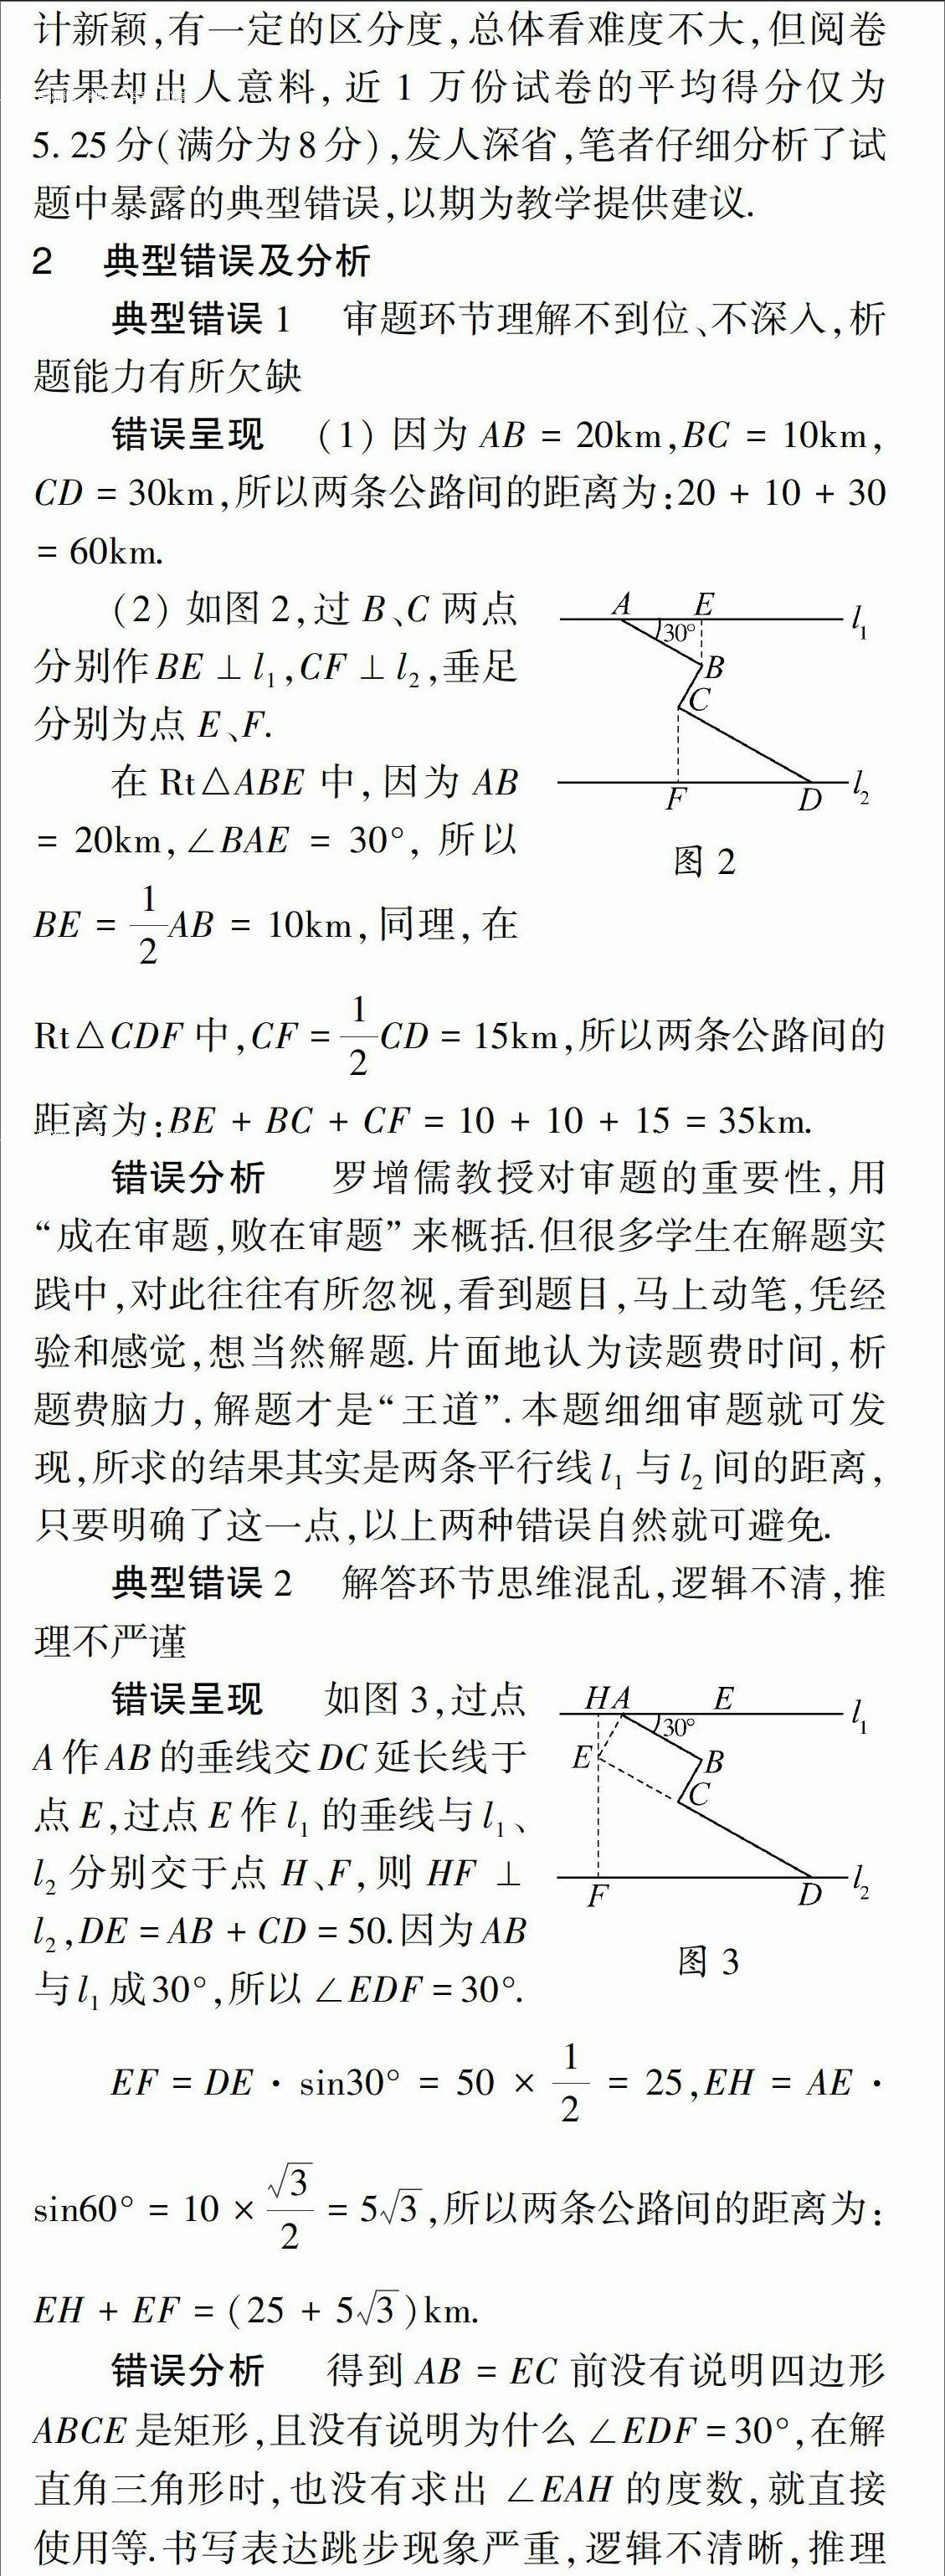 计新颖,有一定的区分度,总体看难度不大,但阅卷
结果却出人意料,近 1 万份试卷的平均得分仅为
5.25分(满分为8分),发人深省,笔者仔细分析了试
题中暴露的典型错误,以期为教学提供建议.
2 典型错误及分析
典型错误1 审题环节理解不到位、不深入,析
题能力有所欠缺
错误呈现 (1) 因为 AB = 20km,BC = 10km,
CD = 30km,所以两条公路间的距离为:20 + 10 + 30
= 60km.
(2) 如图2,过 B、C 两点
分别作BE ⊥ l₁,CF ⊥ l₂,垂足
分别为点 E、F.
在 Rt△ABE 中,因为 AB
= 20km,∠BAE = 30°, 所以
BE = 1/2 AB = 10km,同理,在
A E l₁
30°
B
C
F D l₂
图 2
Rt△CDF 中,CF = 1/2 CD = 15km,所以两条公路间的
距离为:BE + BC + CF = 10 + 10 + 15 = 35km.
错误分析 罗增儒教授对审题的重要性,用
“成在审题,败在审题” 来概括.但很多学生在解题实
践中,对此往往有所忽视,看到题目,马上动笔,凭经
验和感觉,想当然解题.片面地认为读题费时间,析
题费脑力,解题才是“王道”.本题细细审题就可发
现,所求的结果其实是两条平行线l₁ 与l₂ 间的距离,
只要明确了这一点,以上两种错误自然就可避免.
典型错误2 解答环节思维混乱,逻辑不清,推
理不严谨
错误呈现 如图3,过点
A作AB的垂线交DC延长线于
点E,过点E作l₁ 的垂线与l₁、
l₂ 分别交于点 H、F,则 HF ⊥
l₂,DE = AB + CD = 50.因为AB
与l₁ 成30°,所以 ∠EDF = 30°.
H A E l₁
30°
E B
C
F D l₂
图 3
EF = DE · sin30° = 50 × 1/2 = 25,EH = AE ·
sin60° = 10 × √3/2 = 5√3,所以两条公路间的距离为:
EH + EF = (25 + 5√3)km.
错误分析 得到 AB = EC 前没有说明四边形
ABCE是矩形,且没有说明为什么 ∠EDF = 30°,在解
直角三角形时,也没有求出 ∠EAH 的度数,就直接
使用等.书写表达跳步现象严重,逻辑不清晰,推理